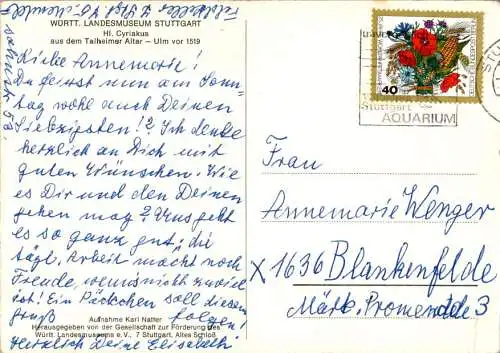 WÜRTT. LANDESMUSEUM STUTTGART
Hl. Cyriakus
aus dem Talheimer Altar – Ulm vor 1519
Liebe Annemarie!
Du feierst nun am Sonn-
tag wohl auch Deinen
Siebzigsten!? Ich denke
herzlich an Dich mit
guten Wünschen. Wie
es Dir und den Deinen
gehen mag? Uns geht
es so ganz gut, die
tägl. Arbeit macht noch
Freude, wenns nicht zuviel
ist! Ein Päckchen soll diesem
Gruß folgen!
Herzlich Deine Elisabeth
Aufnahme Karl Natter
Herausgegeben von der Gesellschaft zur Förderung des
Württ. Landesmuseums e.V., 7 Stuttgart, Altes Schloß
40
Stuttgart
AQUARIUM
Frau
Annemarie Wenger
X 1636 Blankenfelde
Märk. Promenade 3